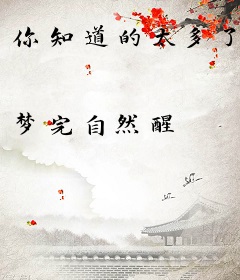 你知道的太多了
梦完自然醒